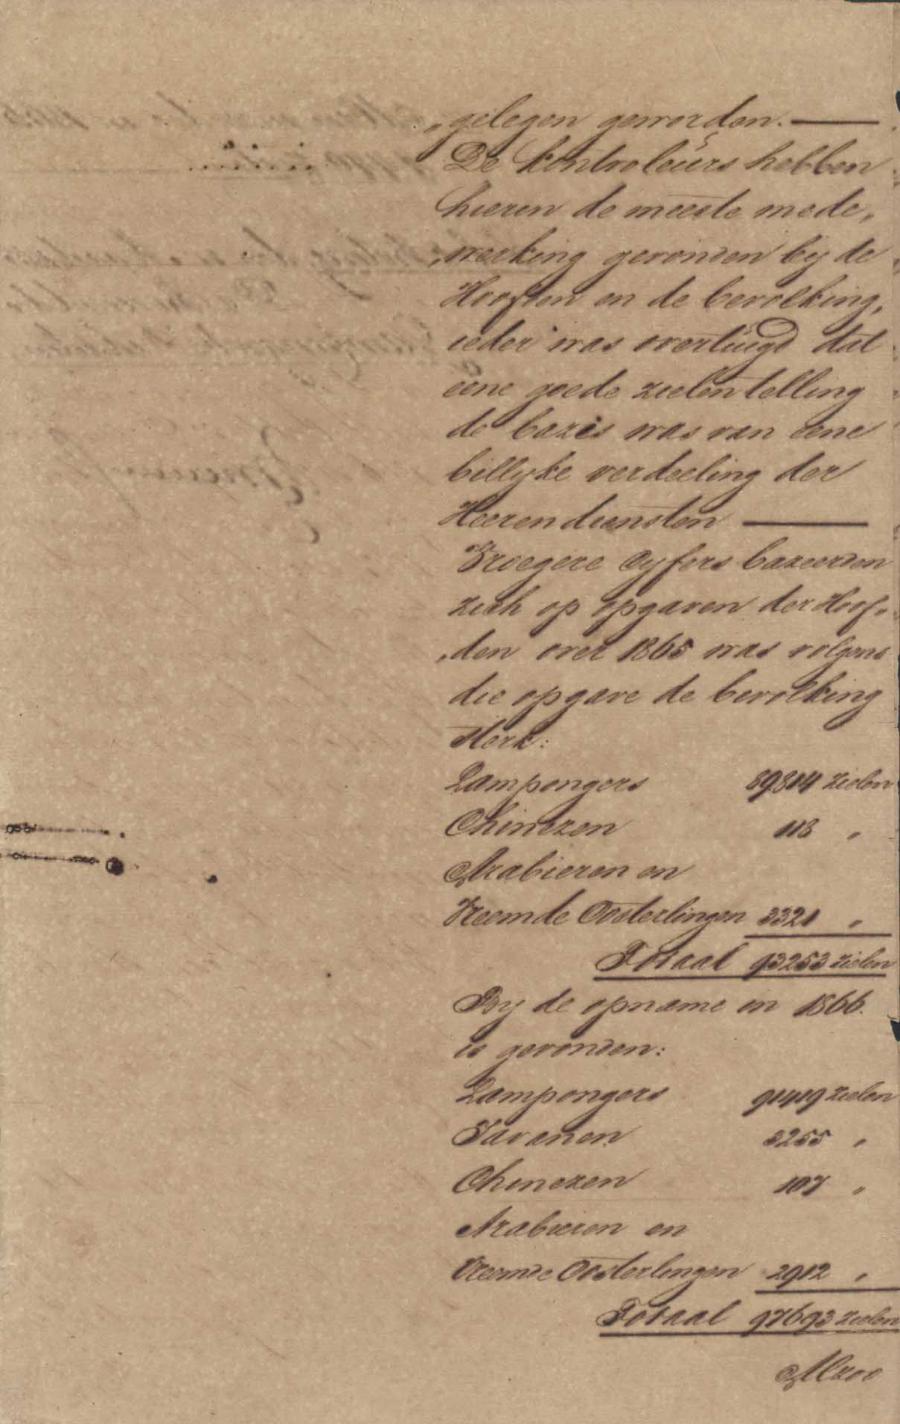 „gelegen geworden. —
De kontroleurs hebben
hierin de meeste mede„
„werking gevonden bij de
Hoofden en de bevolking,
ieder was overtuigd dat
eene goede zielentelling
de bazis was van eene
billijke verdeeling der
Heerendiensten —
Vroegere cijfers bazeerden
zich op opgaven der Hoof„
„den over 1865 was volgens
die opgave de bevolking
sterk:
Lampongers 89814 zielen
Chinezen 118 „
Arabieren en
Vreemde Oosterlingen 3321 „
Totaal 93253 zielen
Bij de opname in 1866.
is gevonden:
Lampongers 91419 zielen
Javanen 3255 „
Chinezen 107 „
Arabieren en
Vreemde Oosterlingen 2912 „
Totaal 97693 zielen
Alzoo